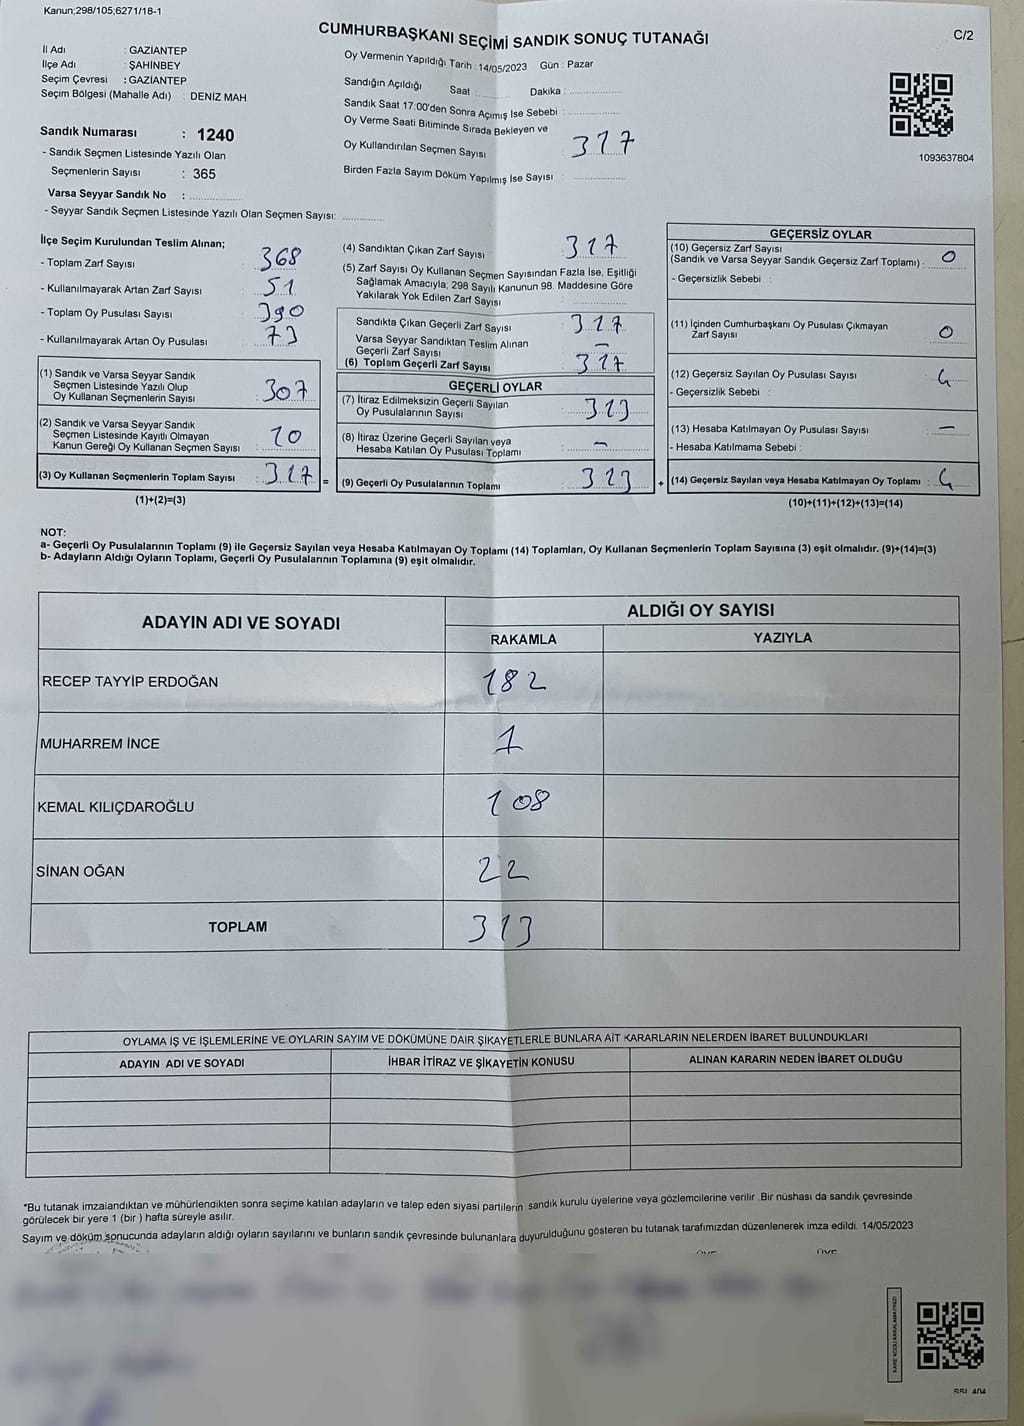 Kanun;298/105,6271/18-1
CUMHURBAŞKANI SEÇİMİ SANDIK SONUÇ TUTANAĞI
C/2
İl Adı : GAZİANTEP
İlçe Adı : ŞAHİNBEY
Seçim Çevresi : GAZİANTEP
Seçim Bölgesi (Mahalle Adı) : DENİZ MAH
Sandık Numarası : 1240
- Sandık Seçmen Listesinde Yazılı Olan
Seçmenlerin Sayısı : 365
Varsa Seyyar Sandık No :
- Seyyar Sandık Seçmen Listesinde Yazılı Olan Seçmen Sayısı:
Oy Vermenin Yapıldığı Tarih :14/05/2023 Gün : Pazar
Sandığın Açıldığı Saat : Dakika :
Sandık Saat 17:00'den Sonra Açımış İse Sebebi :
Oy Verme Saati Bitiminde Sırada Bekleyen ve
Oy Kullandırılan Seçmen Sayısı : 317
Birden Fazla Sayım Döküm Yapılmış İse Sayısı :
1093637804
İlçe Seçim Kurulundan Teslim Alınan;
- Toplam Zarf Sayısı : 368
- Kullanılmayarak Artan Zarf Sayısı : 51
- Toplam Oy Pusulası Sayısı : 390
- Kullanılmayarak Artan Oy Pusulası : 73
(1) Sandık ve Varsa Seyyar Sandık
Seçmen Listesinde Yazılı Olup
Oy Kullanan Seçmenlerin Sayısı : 307
(2) Sandık ve Varsa Seyyar Sandık
Seçmen Listesinde Kayıtlı Olmayan
Kanun Gereği Oy Kullanan Seçmen Sayısı : 10
(3) Oy Kullanan Seçmenlerin Toplam Sayısı : 317 =
(1)+(2)=(3)
(4) Sandıktan Çıkan Zarf Sayısı : 317
(5) Zarf Sayısı Oy Kullanan Seçmen Sayısından Fazla İse, Eşitliği
Sağlamak Amacıyla; 298 Sayılı Kanunun 98. Maddesine Göre
Yakılarak Yok Edilen Zarf Sayısı :
Sandıkta Çıkan Geçerli Zarf Sayısı : 317
Varsa Seyyar Sandıktan Teslim Alınan
Geçerli Zarf Sayısı : –
(6) Toplam Geçerli Zarf Sayısı : 317
GEÇERLİ OYLAR
(7) İtiraz Edilmeksizin Geçerli Sayılan
Oy Pusulalarının Sayısı : 313
(8) İtiraz Üzerine Geçerli Sayılan veya
Hesaba Katılan Oy Pusulası Toplamı : –
(9) Geçerli Oy Pusulalarının Toplamı : 313 +
GEÇERSİZ OYLAR
(10) Geçersiz Zarf Sayısı
(Sandık ve Varsa Seyyar Sandık Geçersiz Zarf Toplamı) : 0
- Geçersizlik Sebebi :
(11) İçinden Cumhurbaşkanı Oy Pusulası Çıkmayan
Zarf Sayısı : 0
(12) Geçersiz Sayılan Oy Pusulası Sayısı : 4
- Geçersizlik Sebebi :
(13) Hesaba Katılmayan Oy Pusulası Sayısı : –
- Hesaba Katılmama Sebebi :
(14) Geçersiz Sayılan veya Hesaba Katılmayan Oy Toplamı : 4
(10)+(11)+(12)+(13)=(14)
NOT:
a- Geçerli Oy Pusulalarının Toplamı (9) ile Geçersiz Sayılan veya Hesaba Katılmayan Oy Toplamı (14) Toplamları, Oy Kullanan Seçmenlerin Toplam Sayısına (3) eşit olmalıdır. (9)+(14)=(3)
b- Adayların Aldığı Oyların Toplamı, Geçerli Oy Pusulalarının Toplamına (9) eşit olmalıdır.
ADAYIN ADI VE SOYADI
ALDIĞI OY SAYISI
RAKAMLA YAZIYLA
RECEP TAYYİP ERDOĞAN 182
MUHARREM İNCE 1
KEMAL KILIÇDAROĞLU 108
SİNAN OĞAN 22
TOPLAM 313
OYLAMA İŞ VE İŞLEMLERİNE VE OYLARIN SAYIM VE DÖKÜMÜNE DAİR ŞİKAYETLERLE BUNLARA AİT KARARLARIN NELERDEN İBARET BULUNDUKLARI
ADAYIN ADI VE SOYADI İHBAR İTİRAZ VE ŞİKAYETİN KONUSU ALINAN KARARIN NEDEN İBARET OLDUĞU
*Bu tutanak imzalandıktan ve mühürlendikten sonra seçime katılan adayların ve talep eden siyasi partilerin sandık kurulu üyelerine veya gözlemcilerine verilir .Bir nüshası da sandık çevresinde
görülecek bir yere 1 (bir ) hafta süreyle asılır.
Sayım ve döküm sonucunda adayların aldığı oyların sayılarını ve bunların sandık çevresinde bulunanlara duyurulduğunu gösteren bu tutanak tarafımızdan düzenlenerek imza edildi. 14/05/2023